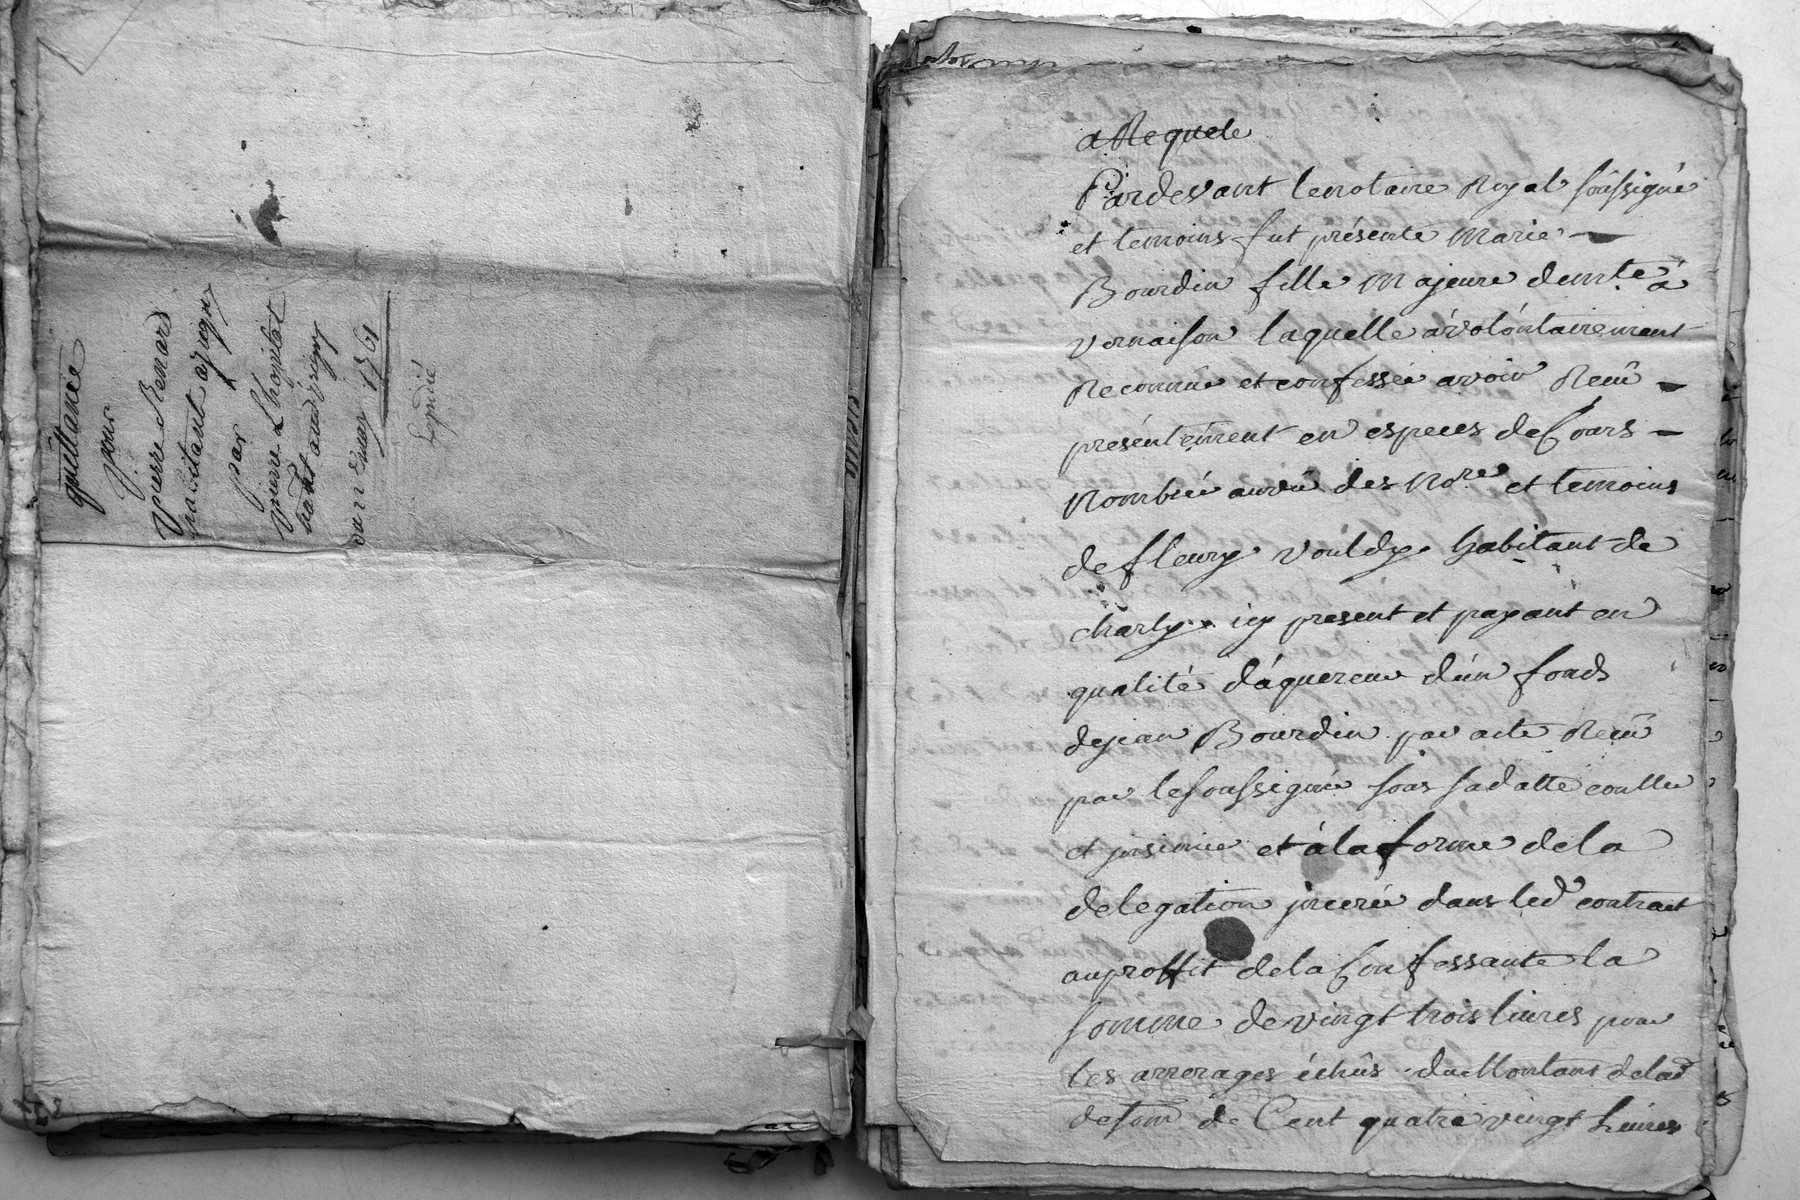 quittance
pour
Pierre Renard
habitant a grigny
par
Pierre L'hopital
habt audt grigny
du 12 may 1761
Expedié
a Requete
Pardevant le notaire Royal soussigné
et temoins fut présente Marie
Bourdin fille Majeure demte à
vernaison laquelle a volontairement
Reconnue et confessée avoir Recû
présentement en espèces de Cours
Nombrée au vû des Nore et temoins
de fleury vouldy habitant de
charly icy present et payant en
qualité d'áquereur d'un fonds
de jean Bourdin par acte Recû
par le soussigné sous sa datte coullée
et insinué et à la forme de la
delegation incerée dans led contract
au proffit de la Confessante la
somme de vingt trois livres pour
les arrerages échûs du Montant de lad
de som de Cent quatre vingt livres